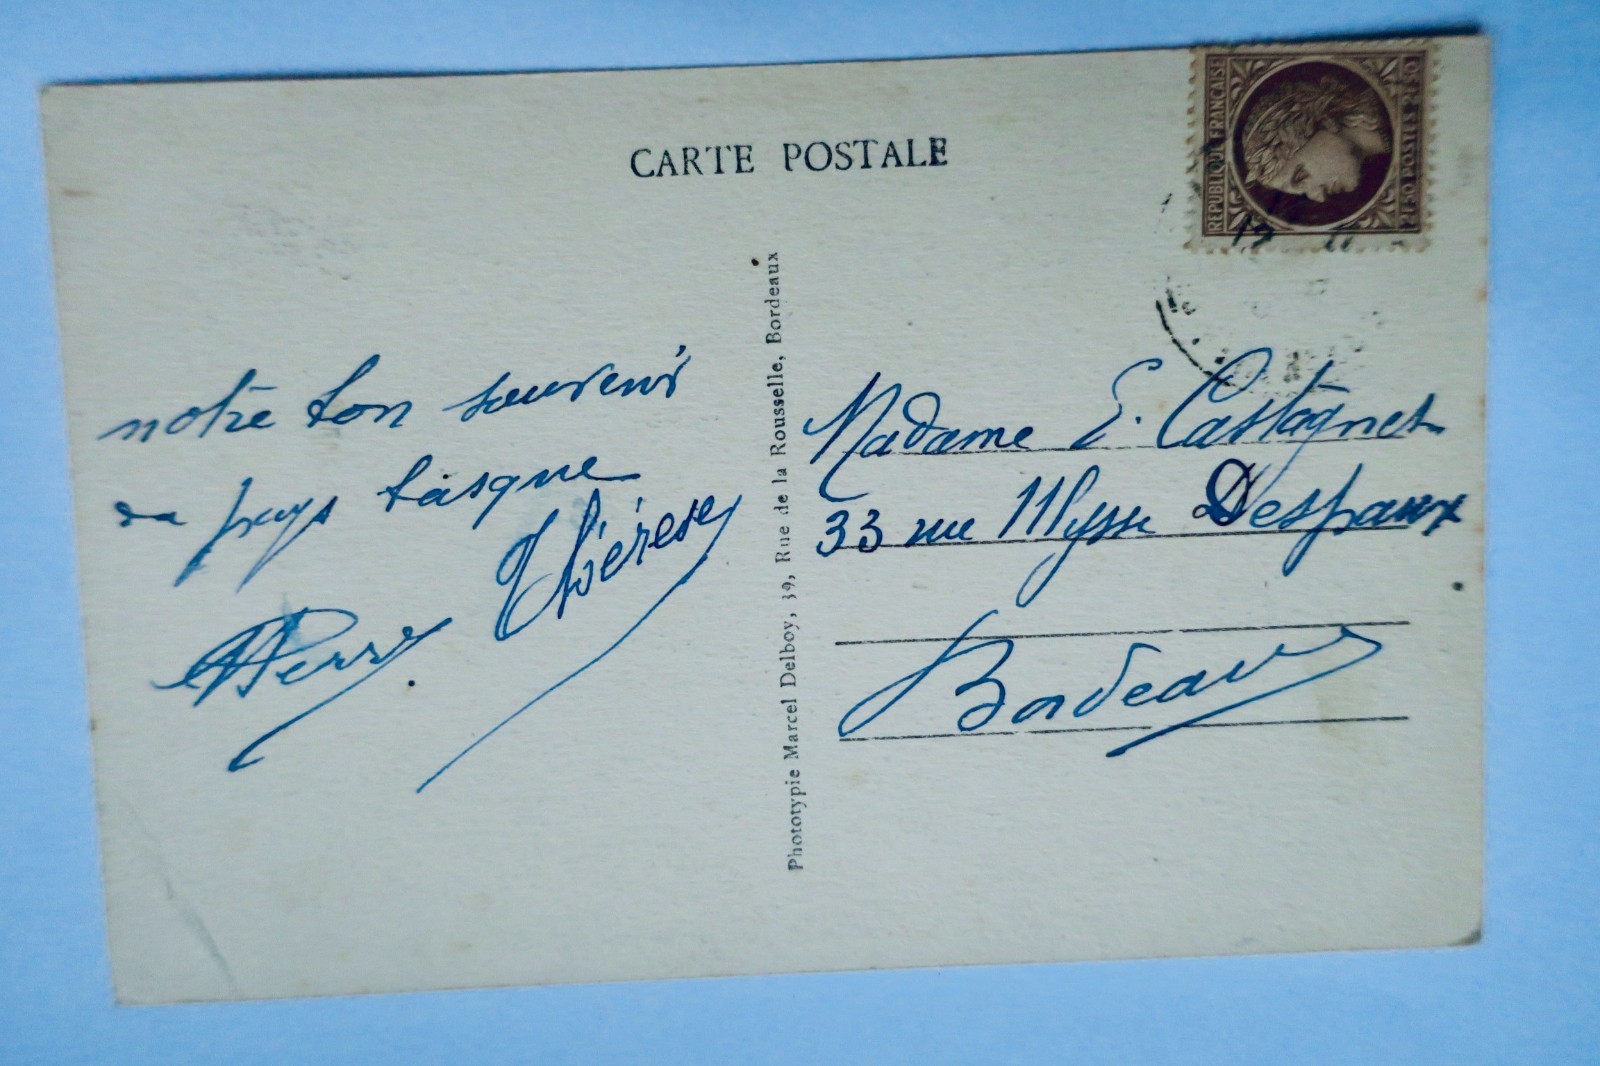 CARTE POSTALE
REPUBLIQUE FRANÇAISE
2f.50 POSTES 2f.50
notre bon souvenir
du pays basque
Thérèse
Pierre
Phototypie Marcel Delboy, 39, Rue de la Rousselle, Bordeaux
Madame E. Castagnet
33 rue Ulysse Despaux
Bordeaux